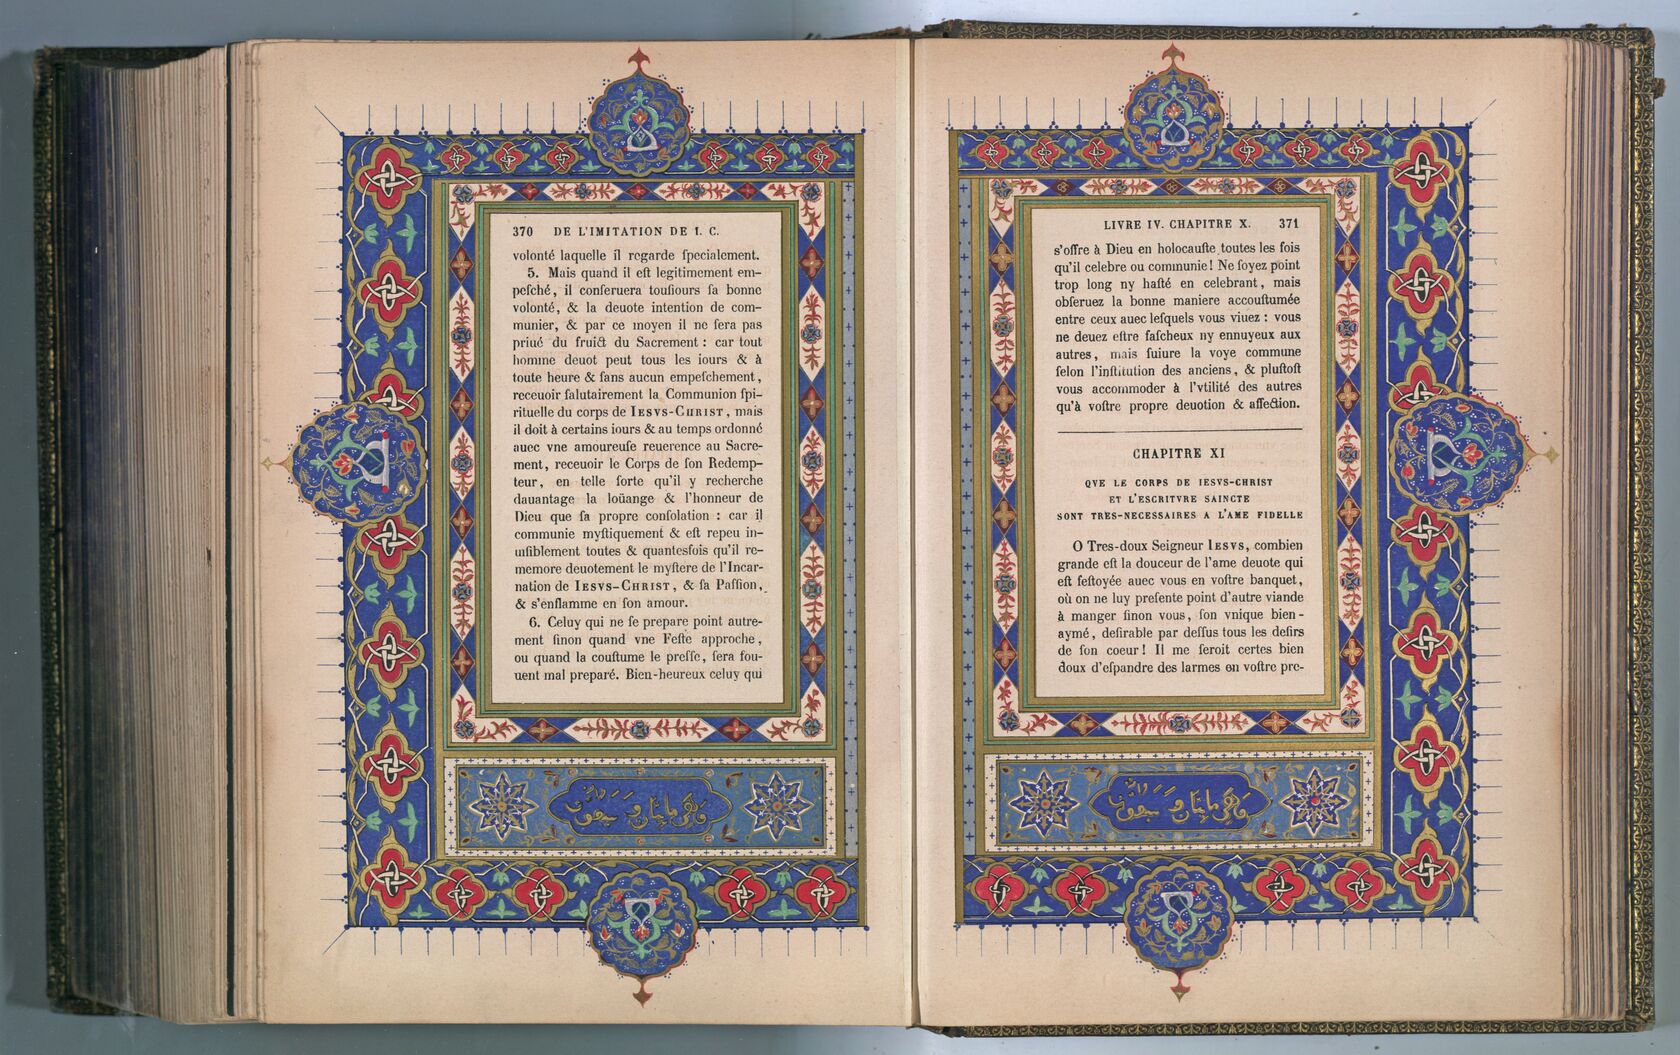 370 DE L'IMITATION DE I. C.
volonté laquelle il regarde ſpecialement.
5. Mais quand il eſt legitimement em-
peſché, il conſeruera touſiours ſa bonne
volonté, & la deuote intention de com-
munier, & par ce moyen il ne ſera pas
priué du fruict du Sacrement : car tout
homme deuot peut tous les iours & à
toute heure & ſans aucun empeſchement,
receuoir ſalutairement la Communion ſpi-
rituelle du corps de IESVS-CHRIST, mais
il doit à certains iours & au temps ordonné
auec vne amoureuſe reuerence au Sacre-
ment, receuoir le Corps de ſon Redemp-
teur, en telle ſorte qu'il y recherche
dauantage la loüange & l'honneur de
Dieu que ſa propre conſolation : car il
communie myſtiquement & eſt repeu in-
uiſiblement toutes & quantesfois qu'il re-
memore deuotement le myſtere de l'Incar-
nation de IESVS-CHRIST, & ſa Paſſion,
& s'enflamme en ſon amour.
6. Celuy qui ne ſe prepare point autre-
ment ſinon quand vne Feſte approche,
ou quand la couſtume le preſſe, ſera ſou-
uent mal preparé. Bien-heureux celuy qui
LIVRE IV. CHAPITRE X. 371
s'offre à Dieu en holocauſte toutes les fois
qu'il celebre ou communie! Ne ſoyez point
trop long ny haſté en celebrant, mais
obſeruez la bonne maniere accouſtumée
entre ceux auec leſquels vous viuez : vous
ne deuez eſtre faſcheux ny ennuyeux aux
autres, mais ſuiure la voye commune
ſelon l'inſtitution des anciens, & pluſtoſt
vous accommoder à l'vtilité des autres
qu'à voſtre propre deuotion & affection.
CHAPITRE XI
QVE LE CORPS DE IESVS-CHRIST
ET L'ESCRITVRE SAINCTE
SONT TRES-NECESSAIRES A L'AME FIDELLE
O Tres-doux Seigneur IESVS, combien
grande eſt la douceur de l'ame deuote qui
eſt feſtoyée auec vous en voſtre banquet,
où on ne luy preſente point d'autre viande
à manger ſinon vous, ſon vnique bien-
aymé, deſirable par deſſus tous les deſirs
de ſon coeur! Il me ſeroit certes bien
doux d'eſpandre des larmes en voſtre pre-